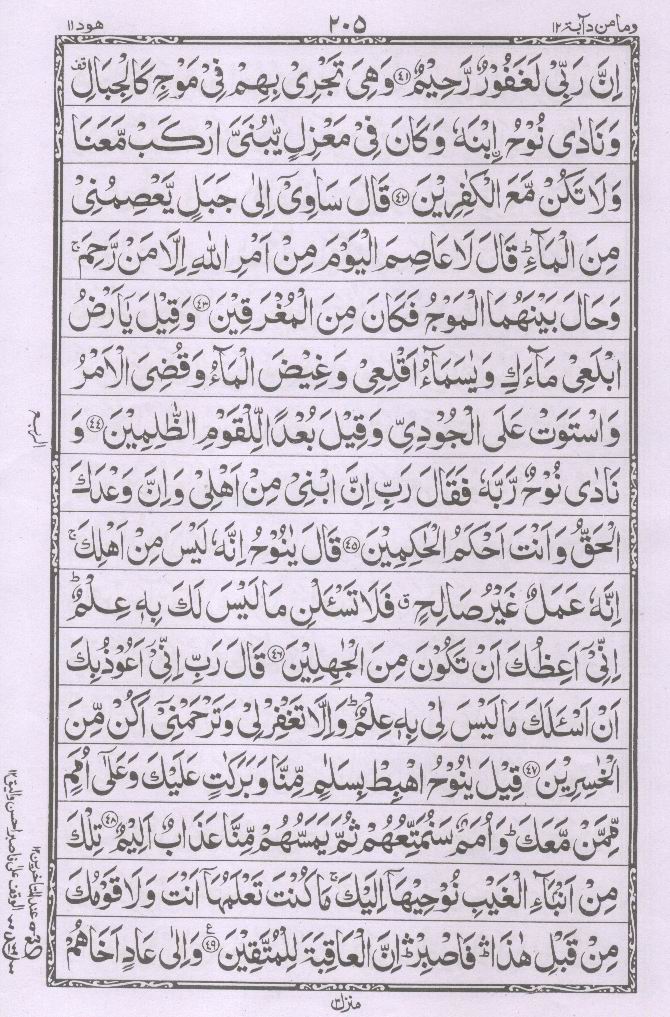 وما من دآبة ١٢
٢٠٥
هود ١١
اِنَّ رَبِّىْ لَغَفُوْرٌ رَّحِيْمٌ ﴿٤١﴾ وَهِىَ تَجْرِىْ بِهِمْ فِىْ مَوْجٍ كَالْجِبَالِ قف
وَنَادٰى نُوْحُ اِۨبْنَهٗ وَكَانَ فِىْ مَعْزِلٍ يّٰبُنَىَّ ارْكَبْ مَّعَنَا
وَلَا تَكُنْ مَّعَ الْكٰفِرِيْنَ ﴿٤٢﴾ قَالَ سَاٰوِىْۤ اِلٰى جَبَلٍ يَّعْصِمُنِىْ
مِنَ الْمَآءِؕ قَالَ لَا عَاصِمَ الْيَوْمَ مِنْ اَمْرِ اللّٰهِ اِلَّا مَنْ رَّحِمَۚ
وَحَالَ بَيْنَهُمَا الْمَوْجُ فَكَانَ مِنَ الْمُغْرَقِيْنَ ﴿٤٣﴾ وَقِيْلَ يٰۤاَرْضُ
ابْلَعِىْ مَآءَكِ وَيٰسَمَآءُ اَقْلِعِىْ وَغِيْضَ الْمَآءُ وَقُضِىَ الْاَمْرُ
وَاسْتَوَتْ عَلَى الْجُوْدِىِّ وَقِيْلَ بُعْدًا لِّلْقَوْمِ الظّٰلِمِيْنَ ﴿٤٤﴾ وَ
نَادٰى نُوْحٌ رَّبَّهٗ فَقَالَ رَبِّ اِنَّ ابْنِىْ مِنْ اَهْلِىْ وَاِنَّ وَعْدَكَ
الْحَقُّ وَاَنْتَ اَحْكَمُ الْحٰكِمِيْنَ ﴿٤٥﴾ قَالَ يٰنُوْحُ اِنَّهٗ لَيْسَ مِنْ اَهْلِكَۚ
اِنَّهٗ عَمَلٌ غَيْرُ صَالِحٍ ق فَلَا تَسْـَٔلْنِ مَا لَيْسَ لَكَ بِهٖ عِلْمٌؕ
اِنِّىْۤ اَعِظُكَ اَنْ تَكُوْنَ مِنَ الْجٰهِلِيْنَ ﴿٤٦﴾ قَالَ رَبِّ اِنِّىْۤ اَعُوْذُ بِكَ
اَنْ اَسْـَٔلَكَ مَا لَيْسَ لِىْ بِهٖ عِلْمٌؕ وَاِلَّا تَغْفِرْ لِىْ وَتَرْحَمْنِىْۤ اَكُنْ مِّنَ
الْخٰسِرِيْنَ ﴿٤٧﴾ قِيْلَ يٰنُوْحُ اهْبِطْ بِسَلٰمٍ مِّنَّا وَبَرَكٰتٍ عَلَيْكَ وَعَلٰۤى اُمَمٍ
مِّمَّنْ مَّعَكَؕ وَاُمَمٌ سَنُمَتِّعُهُمْ ثُمَّ يَمَسُّهُمْ مِّنَّا عَذَابٌ اَلِيْمٌ ﴿٤٨﴾ تِلْكَ
مِنْ اَنْۢبَآءِ الْغَيْبِ نُوْحِيْهَاۤ اِلَيْكَۚ مَا كُنْتَ تَعْلَمُهَاۤ اَنْتَ وَلَا قَوْمُكَ
مِنْ قَبْلِ هٰذَاؕ فَاصْبِرْؕ اِنَّ الْعَاقِبَةَ لِلْمُتَّقِيْنَ ﴿٤٩﴾ ع وَاِلٰى عَادٍ اَخَاهُمْ
الربع
منزل ٣